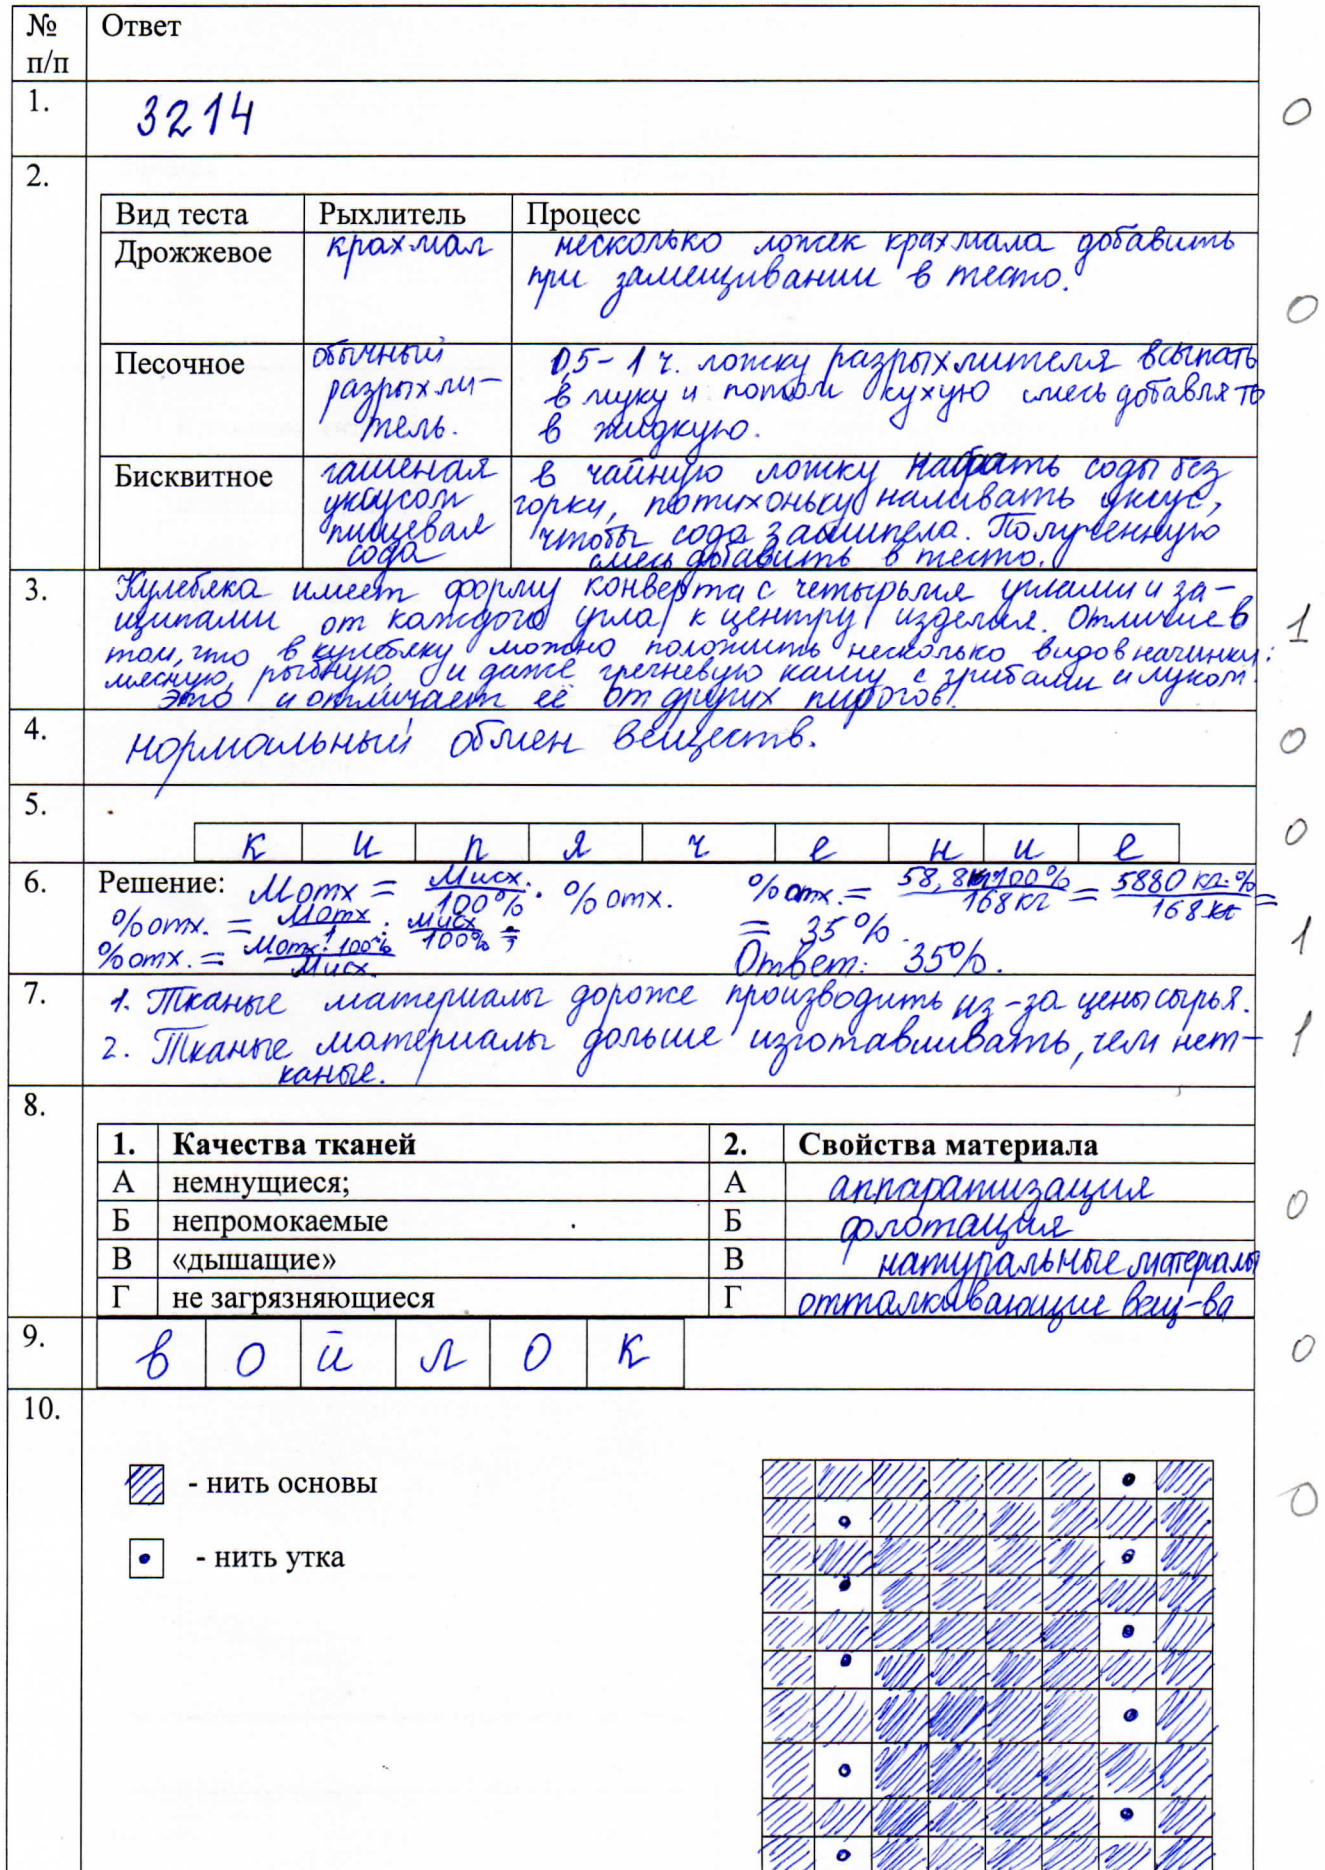 № п/п Ответ
1. 3214 0
2.
Вид теста Рыхлитель Процесс
Дрожжевое крахмал несколько ложек крахмала добавить
при замещивании в тесто.
0
Песочное обычный 0,5-1 ч. ложку разрыхлителя всыпать
разрыхли- в муку и потом сухую смесь добавлять
тель. в жидкую.
Бисквитное гашеная в чайную ложку набрать соды без
уксусом горки, потихоньку наливать уксус,
пищевая чтобы сода зашипела. Полученную
сода смесь добавить в тесто.
3. Кулебяка имеет форму конверта с четырьмя углами и за-
щипами от каждого угла к центру изделия. Отличие в 1
том, что в кулебяку можно положить несколько видов начинки:
мясную, рыбную и даже гречневую кашу с грибами и луком.
Это и отличает её от других пирогов.
4. нормальный обмен веществ. 0
5. к и п я ч е н и е 0
6. Решение: Mотх = Mисх./100% · % отх. % отх. = 58,8кг·100%/168кг = 5880 кг·%/168кг =
% отх. = Mотх/1 : Mисх/100% = = 35%.
% отх. = Mотх·100%/Mисх. Ответ: 35%. 1
7. 1. Тканые материалы дороже производить из-за цены сырья.
2. Тканые материалы дольше изготавливать, чем нет- 1
каные.
8.
1. Качества тканей 2. Свойства материала
А немнущиеся; А аппаратизация
Б непромокаемые Б флотация 0
В «дышащие» В натуральные материалы
Г не загрязняющиеся Г отталкивающие вещ-ва
9. в о й л о к 0
10.
- нить основы 0
- нить утка